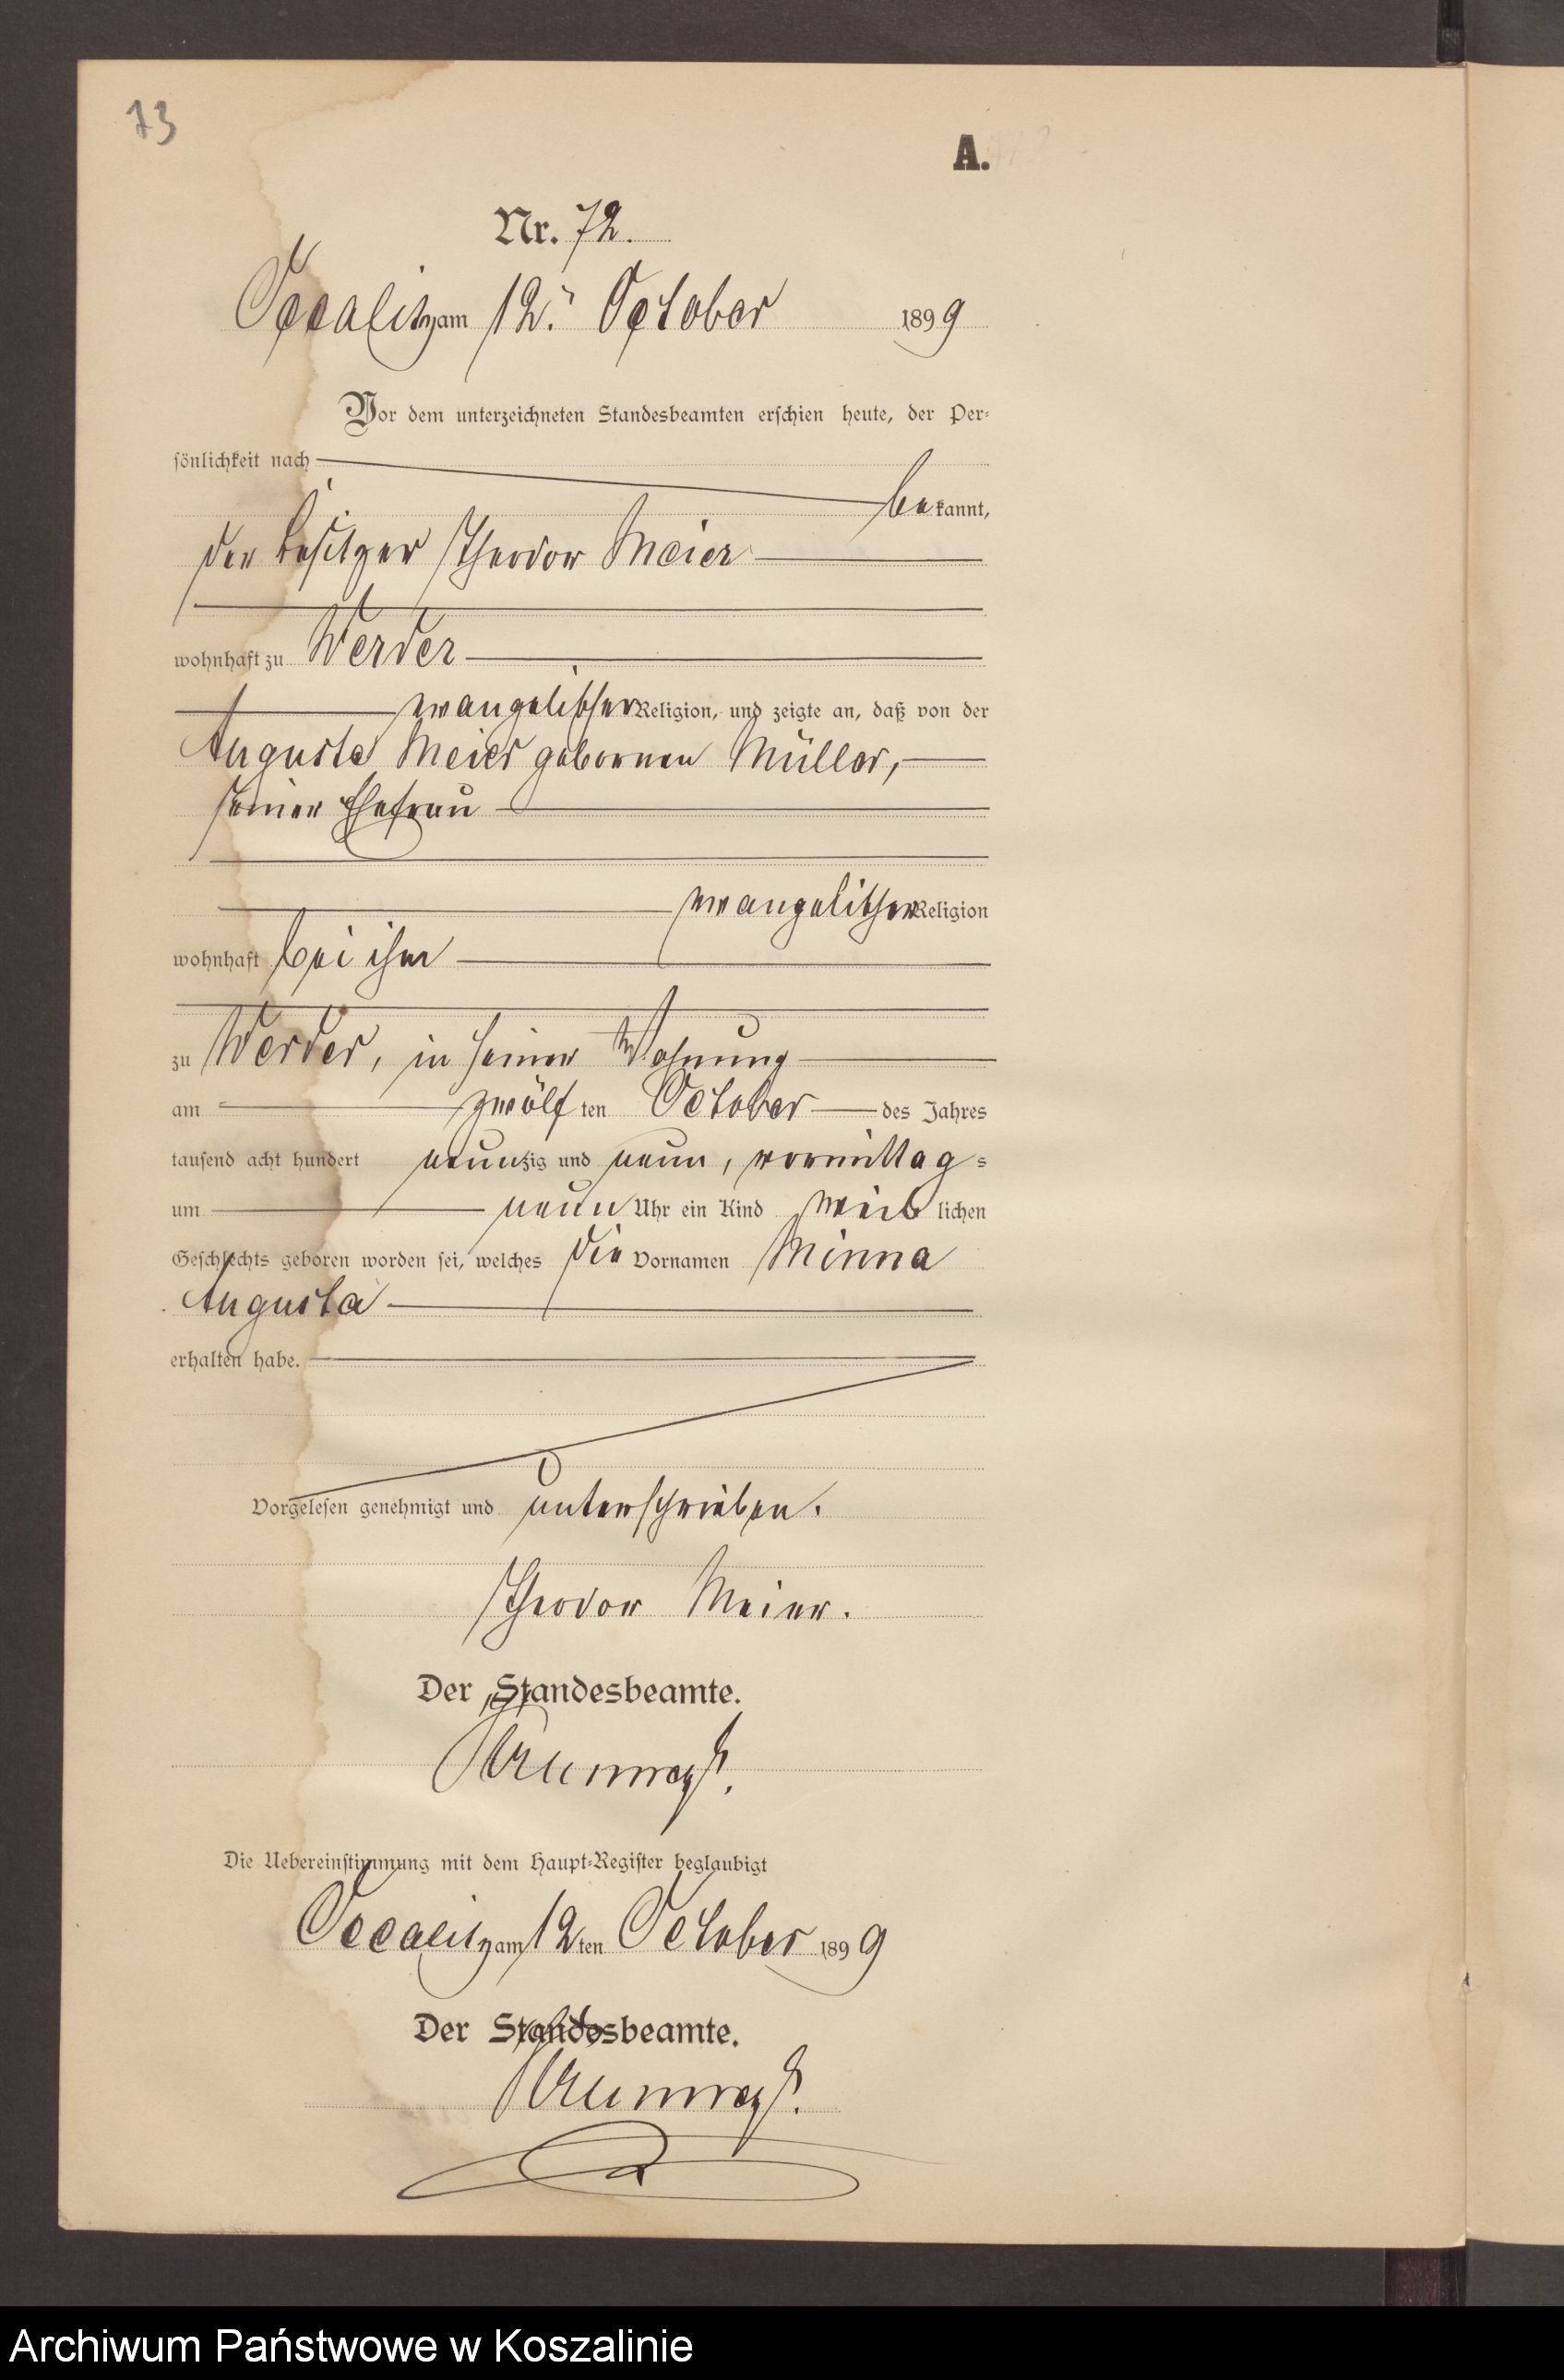 73
A.
Nr. 72.
Occalitz am 12. October 1899
Vor dem unterzeichneten Standesbeamten erschien heute, der Per-
sönlichkeit nach
bekannt,
der Besitzer Theodor Meier
wohnhaft zu Werder
evangelischer Religion, und zeigte an, daß von der
Auguste Meier gebornen Müller,
seiner Ehefrau
evangelischer Religion
wohnhaft bei ihm
zu Werder, in seiner Wohnung
am zwölf ten October des Jahres
tausend acht hundert neunzig und neun, vormittag-
um neun Uhr ein Kind weiblichen
Geschlechts geboren worden sei, welches die Vornamen Minna
Augusta
erhalten habe.
Vorgelesen genehmigt und unterschrieben.
Theodor Meier.
Der Standesbeamte.
Die Uebereinstimmung mit dem Haupt-Register beglaubigt
Occalitz am 12ten October 1899
Der Standesbeamte.
Archiwum Państwowe w Koszalinie